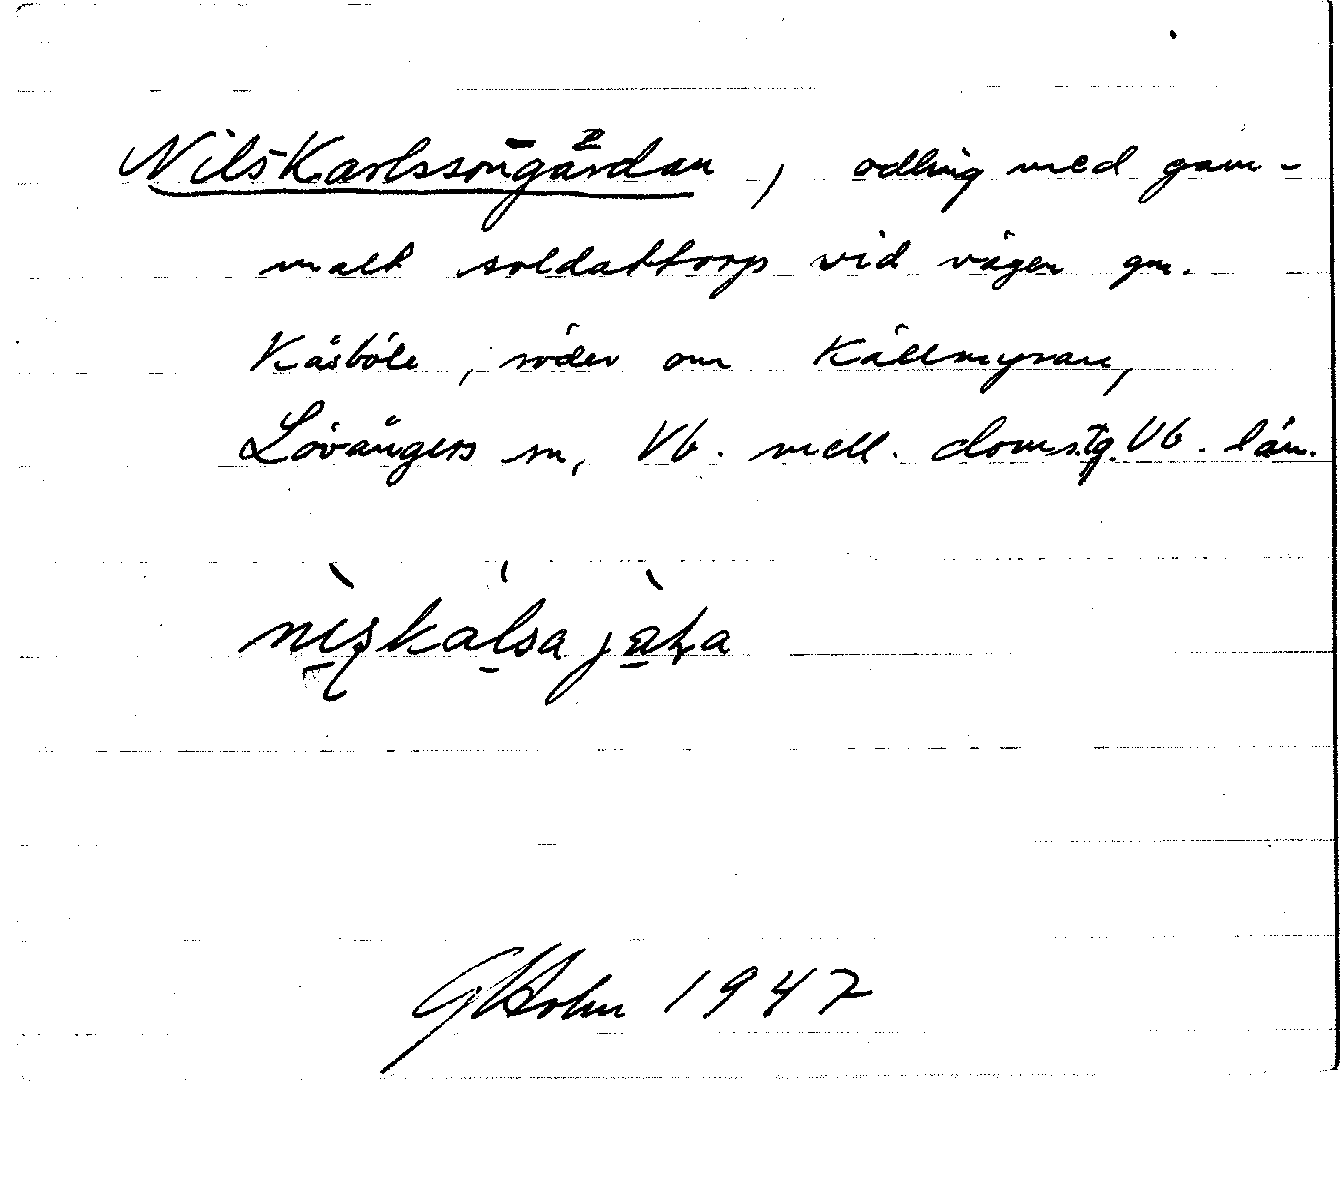 NilsKarlssongärdan, odling med gam-
malt soldattorp vid vägen gm.
Kåsböle, söder om Källmyran,
Lövångers sn, Vb. mell. domstg. Vb. län.
G Holm 1947